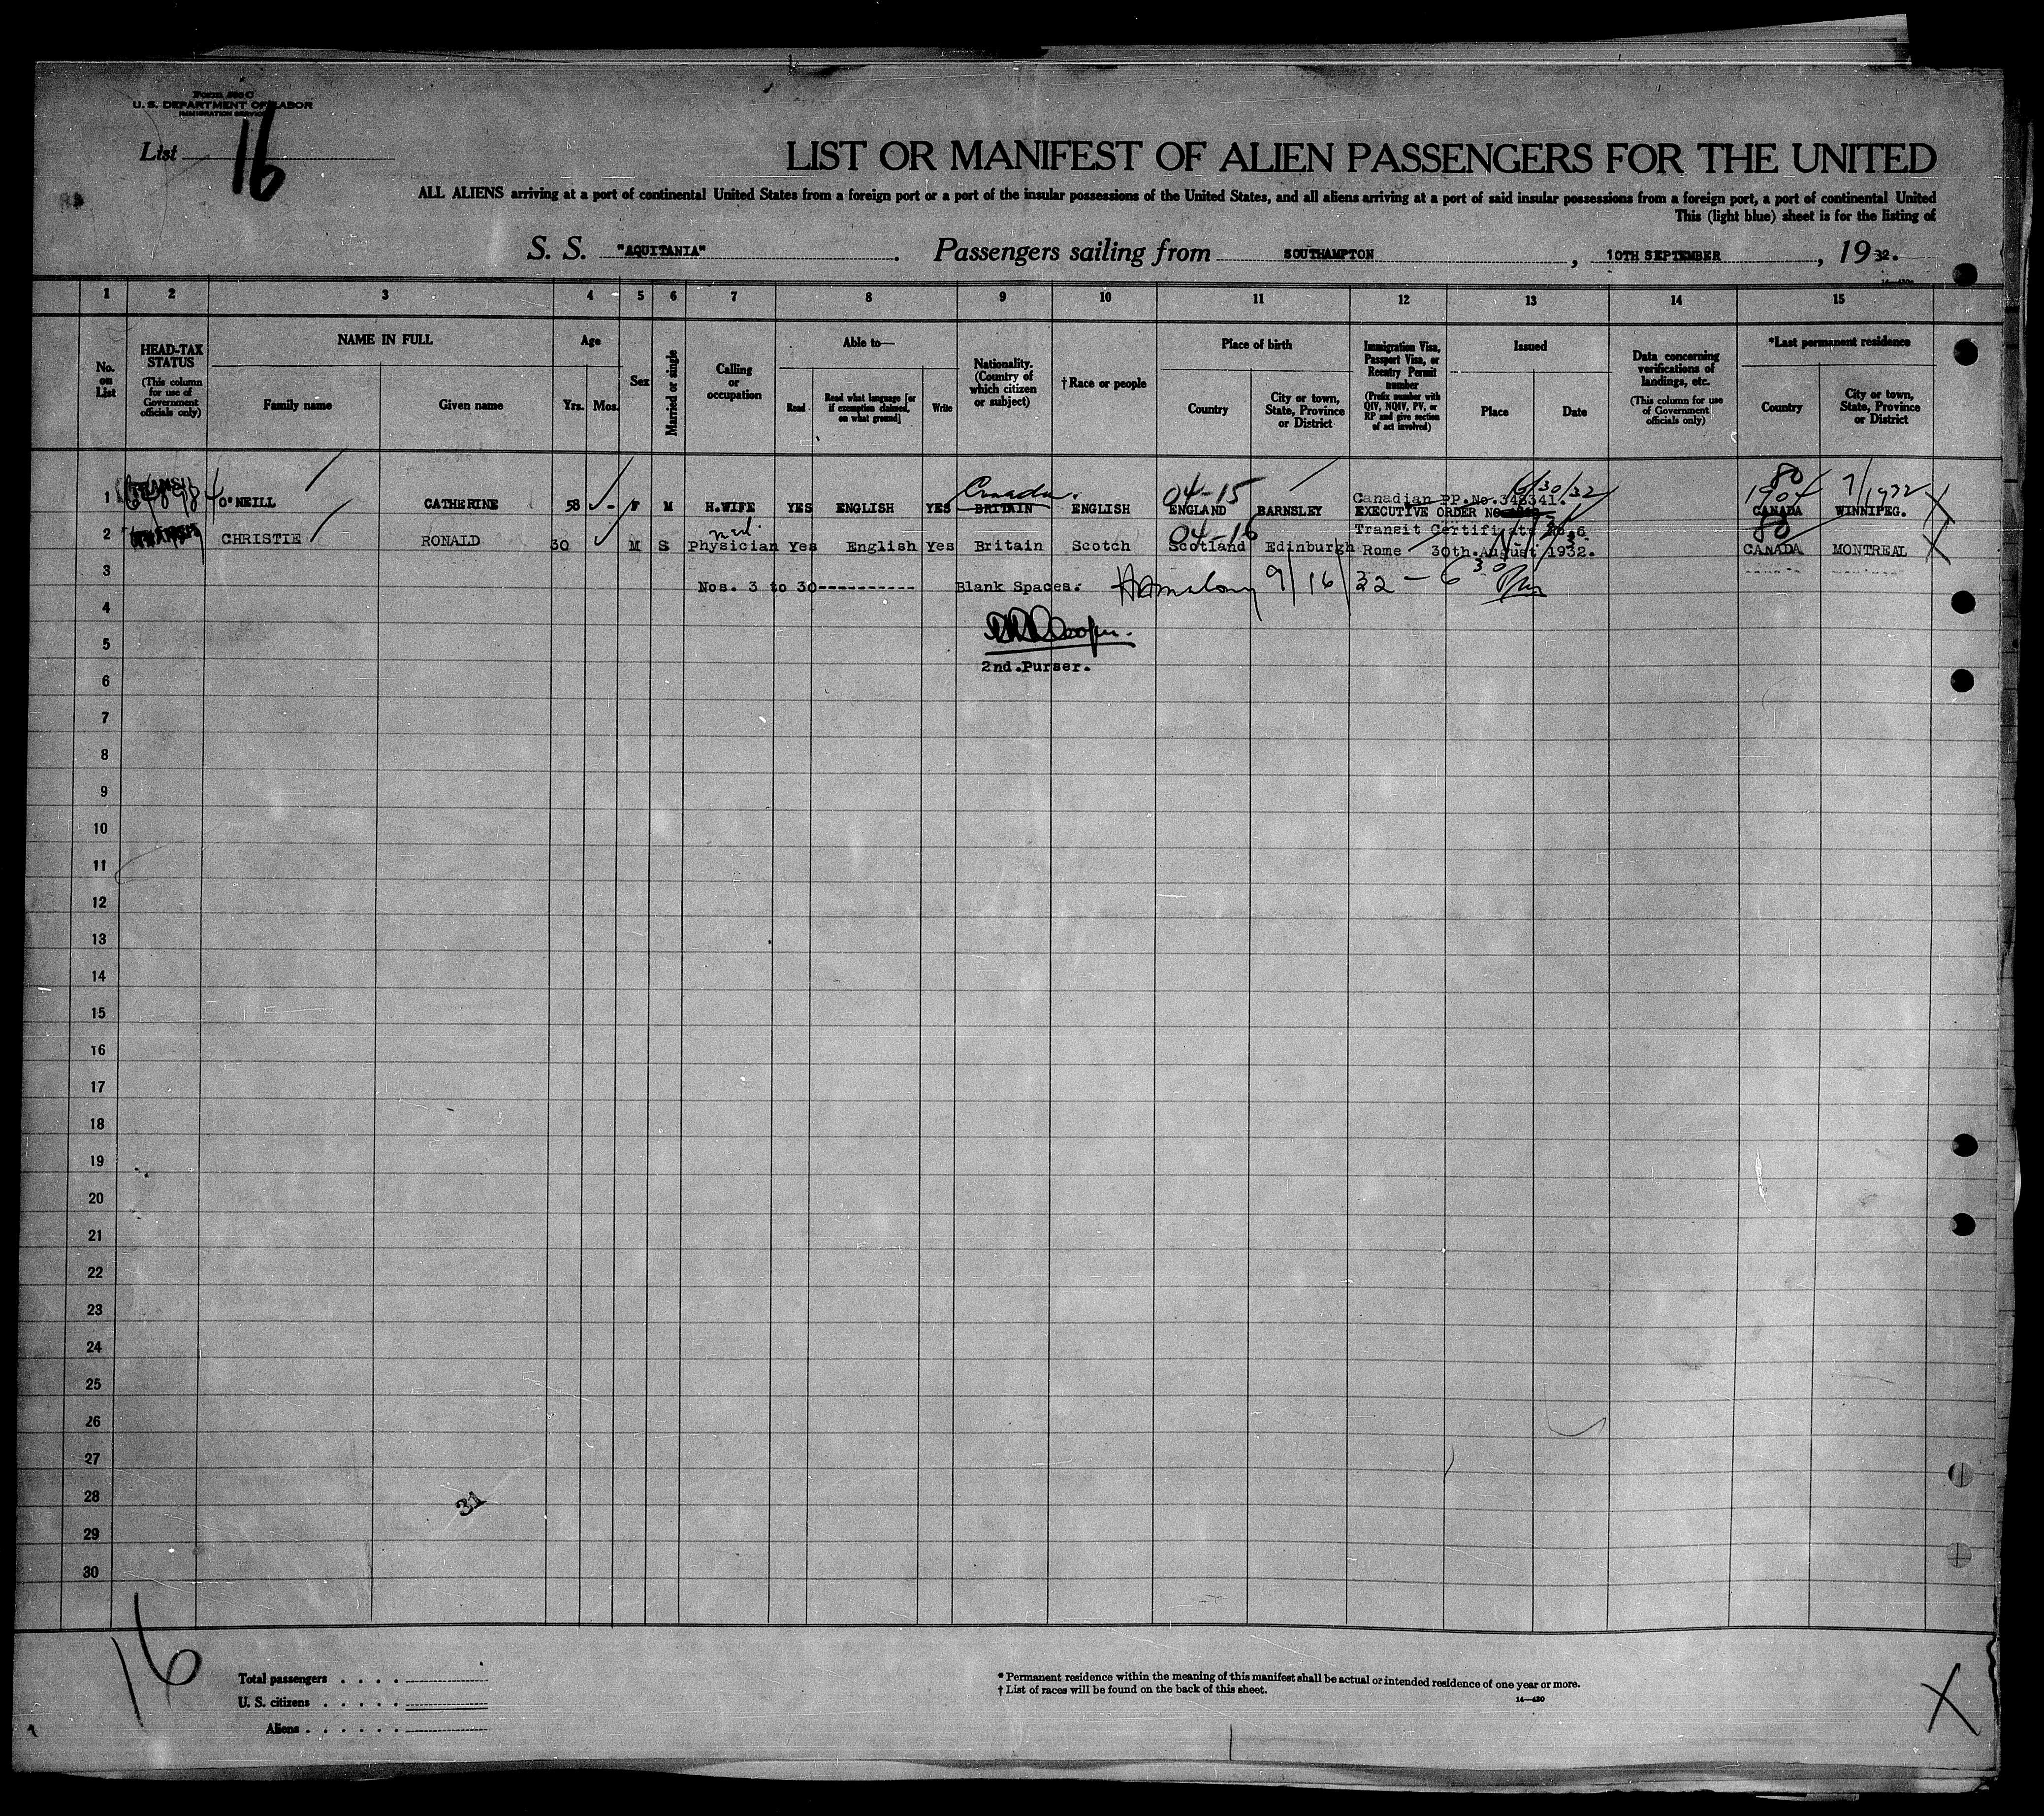 Form 500 C
U. S. DEPARTMENT OF LABOR
IMMIGRATION SERVICE
List 16
LIST OR MANIFEST OF ALIEN PASSENGERS FOR THE UNITED
ALL ALIENS arriving at a port of continental United States from a foreign port or a port of the insular possessions of the United States, and all aliens arriving at a port of said insular possessions from a foreign port, a port of continental United
This (light blue) sheet is for the listing of
S. S. "AQUITANIA". Passengers sailing from SOUTHAMPTON, 10TH SEPTEMBER, 1932.
1 2 3 4 5 6 7 8 9 10 11 12 13 14 15
No. on List
HEAD-TAX STATUS (This column for use of Government officials only)
NAME IN FULL
Family name
Given name
Age
Yrs. Mos.
Sex
Married or single
Calling or occupation
Able to—
Read
Read what language [or if exemption claimed, on what ground]
Write
Nationality. (Country of which citizen or subject)
†Race or people
Place of birth
Country
City or town, State, Province or District
Immigration Visa, Passport Visa, or Reentry Permit number (Prefix number with QIV, NQIV, PV, or RP and give section of act involved)
Issued
Place
Date
Data concerning verifications of landings, etc. (This column for use of Government officials only)
*Last permanent residence
Country
City or town, State, Province or District
Canada. 04-15 6/30/32 80 1904 7/1932
Canadian PP.No.348341.
1 O'NEILL CATHERINE 58 - F M H.WIFE YES ENGLISH YES BRITAIN ENGLISH ENGLAND BARNSLEY EXECUTIVE ORDER No. CANADA WINNIPEG.
med 04-16 Transit Certificate No.6. 80
2 CHRISTIE RONALD 30 M S Physician Yes English Yes Britain Scotch Scotland Edinburgh Rome 30th.August 1932. CANADA MONTREAL
3 Nos. 3 to 30---------- Blank Spaces. 9/16/32 - 6 30 Pm
4
5
2nd.Purser.
6
7
8
9
10
11
12
13
14
15
16
17
18
19
20
21
22
23
24
25
26
27
28
31
29
30
16
Total passengers . . . .
U. S. citizens . . . . .
Aliens . . . . . .
* Permanent residence within the meaning of this manifest shall be actual or intended residence of one year or more.
† List of races will be found on the back of this sheet.
14—430
X